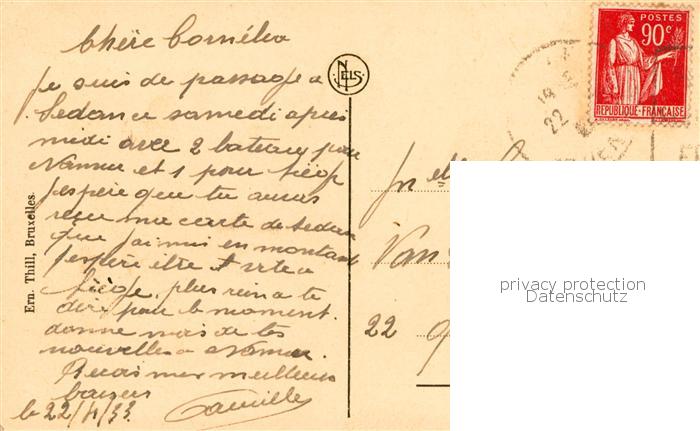 Chère Cornélia
je suis de passage a
Sedan ce samedi après
midi avec 2 bateaux pour
Namur et 1 pour Liège
j'espère que tu auras
reçu ma carte de Sedan
que j'ai mis en montant
j'espère être vite a
Liège, plus rien a te
dire pour le moment.
donne moi de tes
nouvelles a Namur.
Reçois mes meilleurs
baisers
le 22/4/33. Camille
Ern. Thill, Bruxelles.
NELS
POSTES
90c
REPUBLIQUE-FRANÇAISE
22
Melle
Van
22
privacy protection
Datenschutz